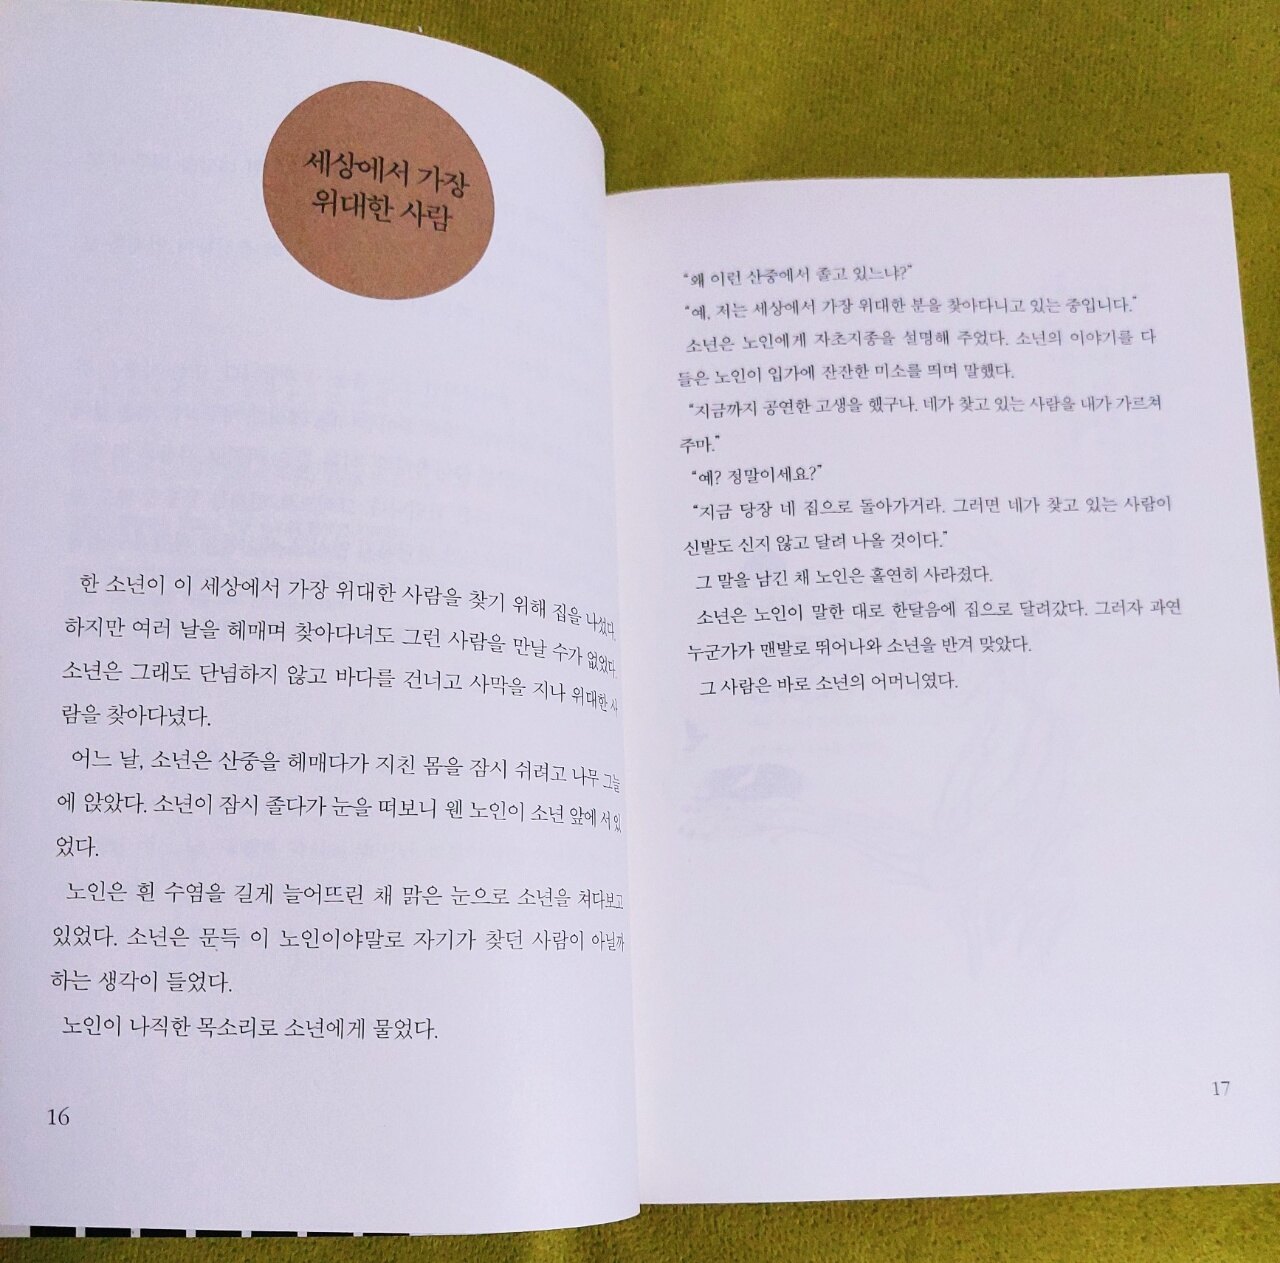 세상에서 가장
위대한 사람
한 소년이 이 세상에서 가장 위대한 사람을 찾기 위해 집을 나섰다.
하지만 여러 날을 헤매며 찾아다녀도 그런 사람을 만날 수가 없었다.
소년은 그래도 단념하지 않고 바다를 건너고 사막을 지나 위대한 사
람을 찾아다녔다.
어느 날, 소년은 산중을 헤매다가 지친 몸을 잠시 쉬려고 나무 그늘
에 앉았다. 소년이 잠시 졸다가 눈을 떠보니 웬 노인이 소년 앞에 서 있
었다.
노인은 흰 수염을 길게 늘어뜨린 채 맑은 눈으로 소년을 쳐다보고
있었다. 소년은 문득 이 노인이야말로 자기가 찾던 사람이 아닐까
하는 생각이 들었다.
노인이 나직한 목소리로 소년에게 물었다.
16
“왜 이런 산중에서 졸고 있느냐?”
“예, 저는 세상에서 가장 위대한 분을 찾아다니고 있는 중입니다.”
소년은 노인에게 자초지종을 설명해 주었다. 소년의 이야기를 다
들은 노인이 입가에 잔잔한 미소를 띄며 말했다.
“지금까지 공연한 고생을 했구나. 네가 찾고 있는 사람을 내가 가르쳐
주마.”
“예? 정말이세요?”
“지금 당장 네 집으로 돌아가거라. 그러면 네가 찾고 있는 사람이
신발도 신지 않고 달려 나올 것이다.”
그 말을 남긴 채 노인은 홀연히 사라졌다.
소년은 노인이 말한 대로 한달음에 집으로 달려갔다. 그러자 과연
누군가가 맨발로 뛰어나와 소년을 반겨 맞았다.
그 사람은 바로 소년의 어머니였다.
17